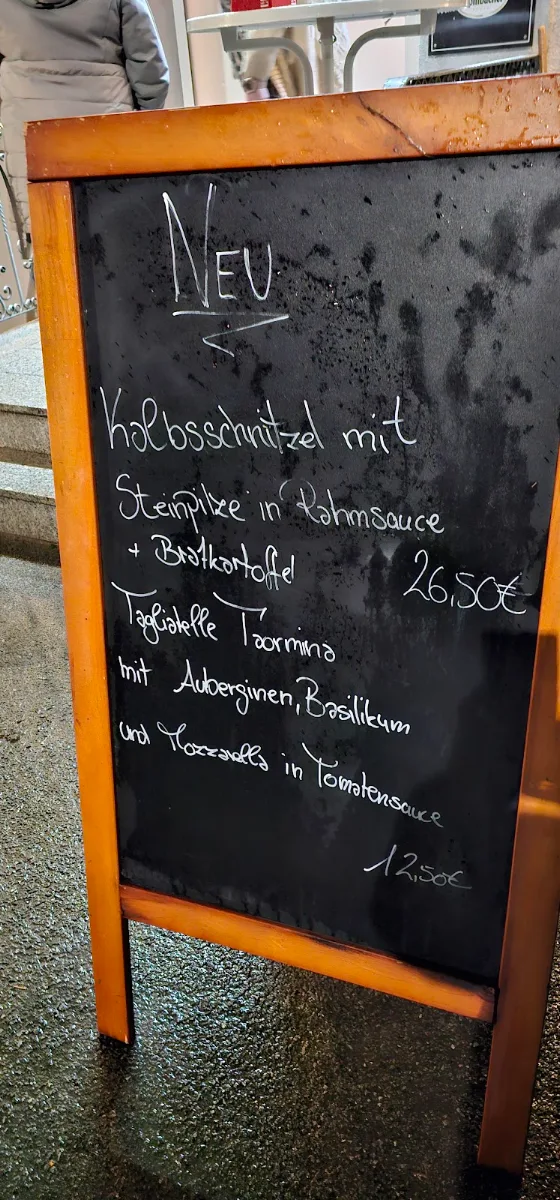 NEU
Kalbsschnitzel mit
Steinpilze in Rahmsauce
+ Bratkartoffel
26,50€
Tagliatelle Taormina
mit Auberginen, Basilikum
und Mozzarella in Tomatensauce
12,50€